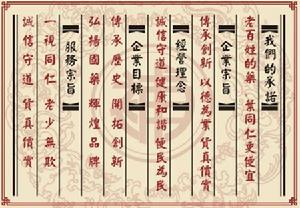 我們的承諾
老百姓的藥 葉同仁更便宜
企業宗旨
傳承創新 以德為業 貨真價實
經營理念
誠信守道 健康和諧 便民為民
企業目標
傳承歷史 開拓創新
弘揚國藥 輝煌品牌
服務宗旨
一視同仁 老少無欺
誠信守道 貨真價實